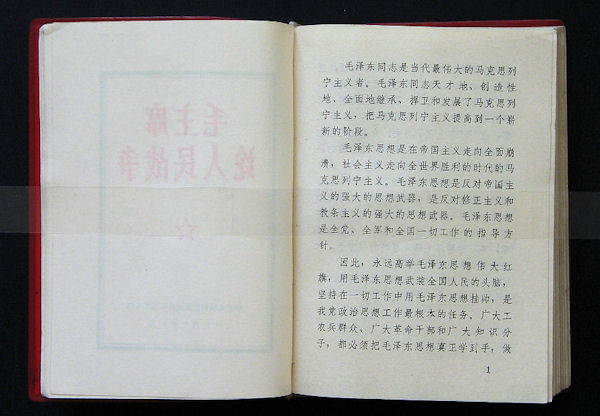 毛主席
论人民战争
毛泽东同志是当代最伟大的马克思列
宁主义者。毛泽东同志天才地、创造性
地、全面地继承、捍卫和发展了马克思列
宁主义，把马克思列宁主义提高到一个崭
新的阶段。
毛泽东思想是在帝国主义走向全面崩
溃，社会主义走向全世界胜利的时代的马
克思列宁主义。毛泽东思想是反对帝国主
义的强大的思想武器，是反对修正主义和
教条主义的强大的思想武器。毛泽东思想
是全党、全军和全国一切工作的指导方
针。
因此，永远高举毛泽东思想伟大红
旗，用毛泽东思想武装全国人民的头脑，
坚持在一切工作中用毛泽东思想挂帅，是
我党政治思想工作最根本的任务。广大工
农兵群众、广大革命干部和广大知识分
子，都必须把毛泽东思想真正学到手，做
1